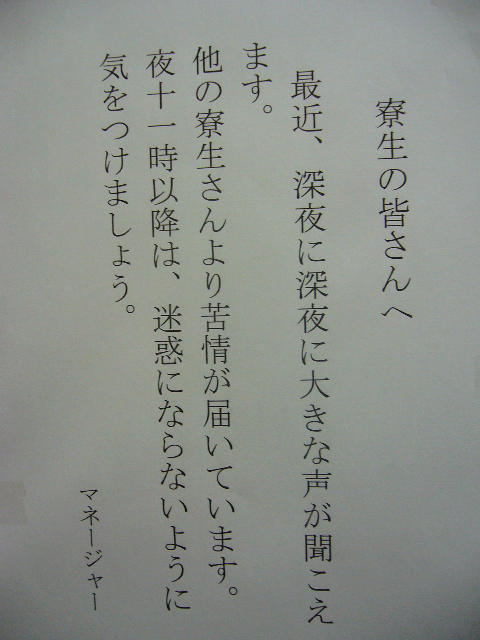 寮生の皆さんへ
最近、深夜に深夜に大きな声が聞こえ
ます。
他の寮生さんより苦情が届いています。
夜十一時以降は、迷惑にならないように
気をつけましょう。
マネージャー